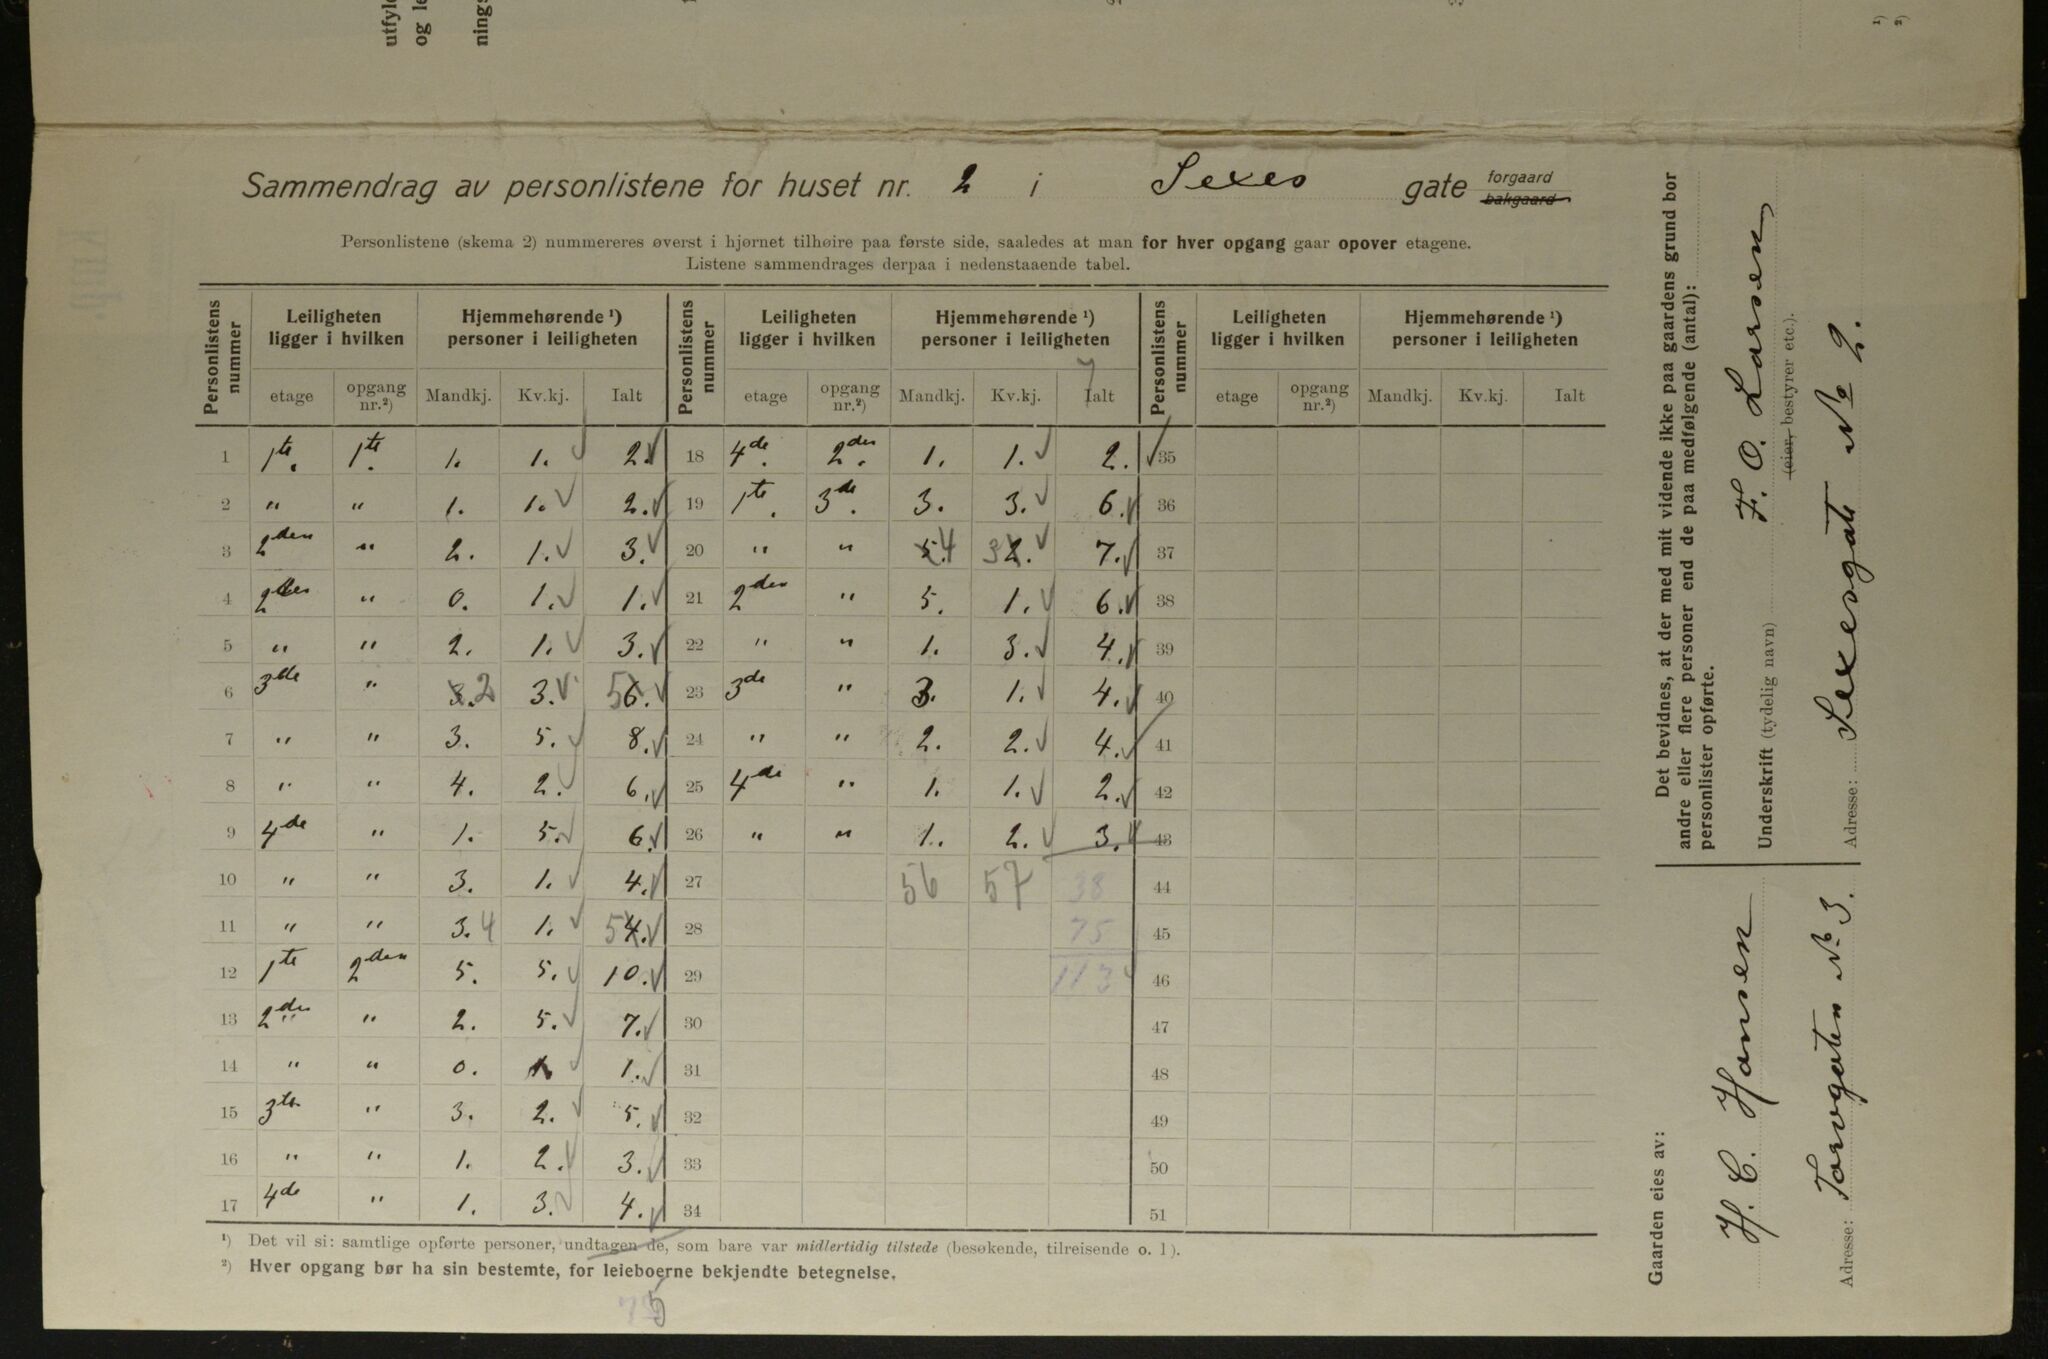 utfyl
og le
nings
1)
2)
Sammendrag av personlistene for huset nr. 2 i Sexes gate forgaard bakgaard
Personlistene (skema 2) nummereres øverst i hjørnet tilhøire paa første side, saaledes at man for hver opgang gaar opover etagene.
Listene sammendrages derpaa i nedenstaaende tabel.
Personlistens nummer | Leiligheten ligger i hvilken | Hjemmehørende ¹) personer i leiligheten | Personlistens nummer | Leiligheten ligger i hvilken | Hjemmehørende ¹) personer i leiligheten | Personlistens nummer | Leiligheten ligger i hvilken | Hjemmehørende ¹) personer i leiligheten
etage | opgang nr.²) | Mandkj. | Kv.kj. | Ialt | etage | opgang nr.²) | Mandkj. | Kv.kj. | Ialt | etage | opgang nr.²) | Mandkj. | Kv.kj. | Ialt
1 | 1te. | 1te. | 1. | 1. | 2. | 18 | 4de. | 2den. | 1. | 1. | 2. | 35
2 | " | " | 1. | 1. | 2. | 19 | 1te. | 3de. | 3. | 3. | 6. | 36
3 | 2den | " | 2. | 1. | 3. | 20 | " | " | 5. 4 | 3 2. | 7. | 37
4 | 2den | " | 0. | 1. | 1. | 21 | 2den | " | 5. | 1. | 6. | 38
5 | " | " | 2. | 1. | 3. | 22 | " | " | 1. | 3. | 4. | 39
6 | 3de | " | 3. 2 | 3. | 5 6. | 23 | 3de | " | 3. | 1. | 4. | 40
7 | " | " | 3. | 5. | 8. | 24 | " | " | 2. | 2. | 4. | 41
8 | " | " | 4. | 2. | 6. | 25 | 4de | " | 1. | 1. | 2. | 42
9 | 4de | " | 1. | 5. | 6. | 26 | " | " | 1. | 2. | 3. | 43
10 | " | " | 3. | 1. | 4. | 27 | 56 | 57 | 38 | 44
11 | " | " | 3. 4 | 1. | 5 4. | 28 | 75 | 45
12 | 1te | 2den | 5. | 5. | 10. | 29 | 113 | 46
13 | 2den | " | 2. | 5. | 7. | 30 | 47
14 | " | " | 0. | 1. | 1. | 31 | 48
15 | 3de | " | 3. | 2. | 5. | 32 | 49
16 | " | " | 1. | 2. | 3. | 33 | 50
17 | 4de | " | 1. | 3. | 4. | 34 | 51
¹) Det vil si: samtlige opførte personer, undtagen de, som bare var midlertidig tilstede (besøkende, tilreisende o. l).
²) Hver opgang bør ha sin bestemte, for leieboerne bekjendte betegnelse.
75
Det bevidnes, at der med mit vidende ikke paa gaardens grund bor
andre eller flere personer end de paa medfølgende (antal):
personlister opførte.
Underskrift (tydelig navn) F. O. Larsen
(eier, bestyrer etc.).
Adresse: Sexesgate No 2.
Gaarden eies av:
H. C. Hansen
Adresse: Torvgaten No 3.